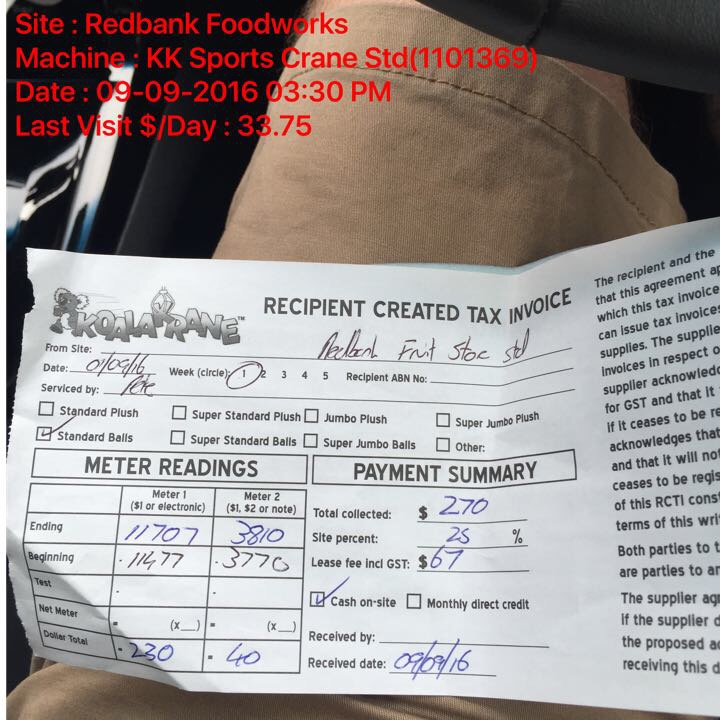 Site : Redbank Foodworks
Machine : KK Sports Crane Std(1101369)
Date : 09-09-2016 03:30 PM
Last Visit $/Day : 33.75
KOALA KRANE™
RECIPIENT CREATED TAX INVOICE
From Site: Redbank Fruit Store std
Date: 01/09/16 Week (circle): 1 2 3 4 5 Recipient ABN No:
Serviced by: Pete
Standard Plush Super Standard Plush Jumbo Plush Super Jumbo Plush
Standard Balls Super Standard Balls Super Jumbo Balls Other:
METER READINGS
Meter 1 Meter 2
($1 or electronic) ($1, $2 or note)
Ending 11707 3810
Beginning 11477 3770
Test - -
Net Meter = (x__) = (x__)
Dollar Total = 230 = 40
PAYMENT SUMMARY
Total collected: $ 270
Site percent: 25 %
Lease fee incl GST: $67
Cash on-site Monthly direct credit
Received by:
Received date: 09/09/16
The recipient and the
that this agreement
which this tax invoice
can issue tax invoices
supplies. The supplie
invoices in respect o
supplier acknowledg
for GST and that it
if it ceases to be re
acknowledges that
and that it will not
ceases to be regis
of this RCTI cons
terms of this writ
Both parties to t
are parties to an
The supplier agr
if the supplier d
the proposed a
receiving this d